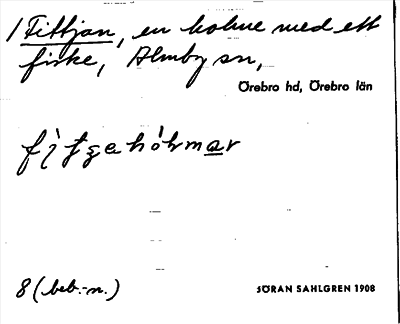 /Fittjan, en holme med ett
fiske, Almby sn,
Örebro hd, Örebro län
8 (beb.-n.)
SÖRAN SAHLGREN 1908